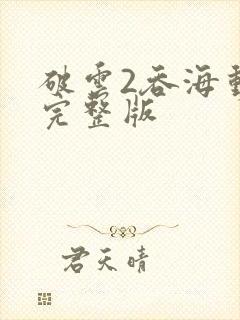 破雲2吞海
完整版
君天晴